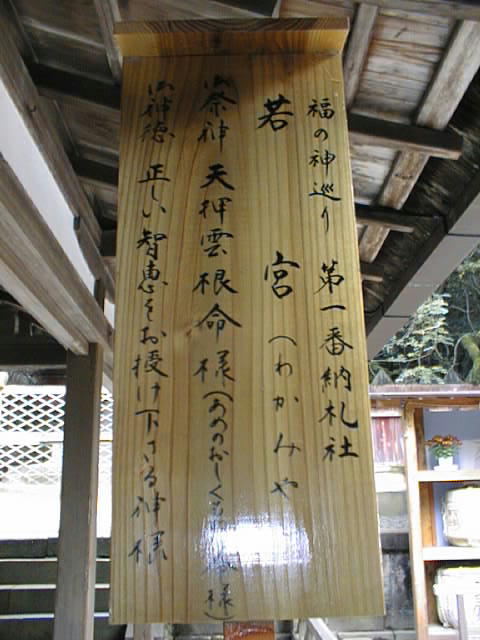 福の神巡り 第一番納札社
若宮(わかみや
御祭神 天押雲根命様(あめのおしく 様)
御神徳 正しい智恵をお授け下さる神様